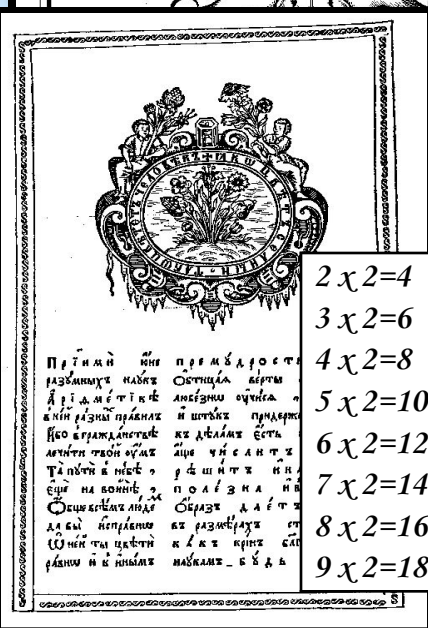 ЧЕЛОВѢКЪ + ꙖКѠ ЦВѢТЪ СЕЛНЫЙ ТАКО
Прїими́ ю́не премꙋ́дрост
разꙋ́мныхъ наꙋ́къ Ѻбтица́ѧ ве́рты
А҆рїѳме́тїкѣ любе́знѡ ᲂу҆чи́сѧ
в не́й ра́зны пра́вилъ и҆ штꙋ́къ придерж
И҆́бо в гражда́нствѣ къ дѣла́мъ є҆́сть
лечи́ти тво́й ᲂу҆́мъ а҆́ще чи́слитъ
Та̀ пꙋти̑ в не́бѣ, рѣши́тъ и҆ на
є҆щѐ на во́йнѣ, поле́зна и҆ в
Ѻ҆́бще всѣ́мъ лю́де ѻ҆́бразъ дае́тъ
дабы̀ и҆спра́внѡ въ размѣ́рахъ ст
Ѿ не́й ты̀ цвѣтѝ ка́къ кри́нъ бл
ра́внѡ и҆ к и҆ннымъ наꙋ́камъ бꙋ́дь
2 x 2=4
3 x 2=6
4 x 2=8
5 x 2=10
6 x 2=12
7 x 2=14
8 x 2=16
9 x 2=18